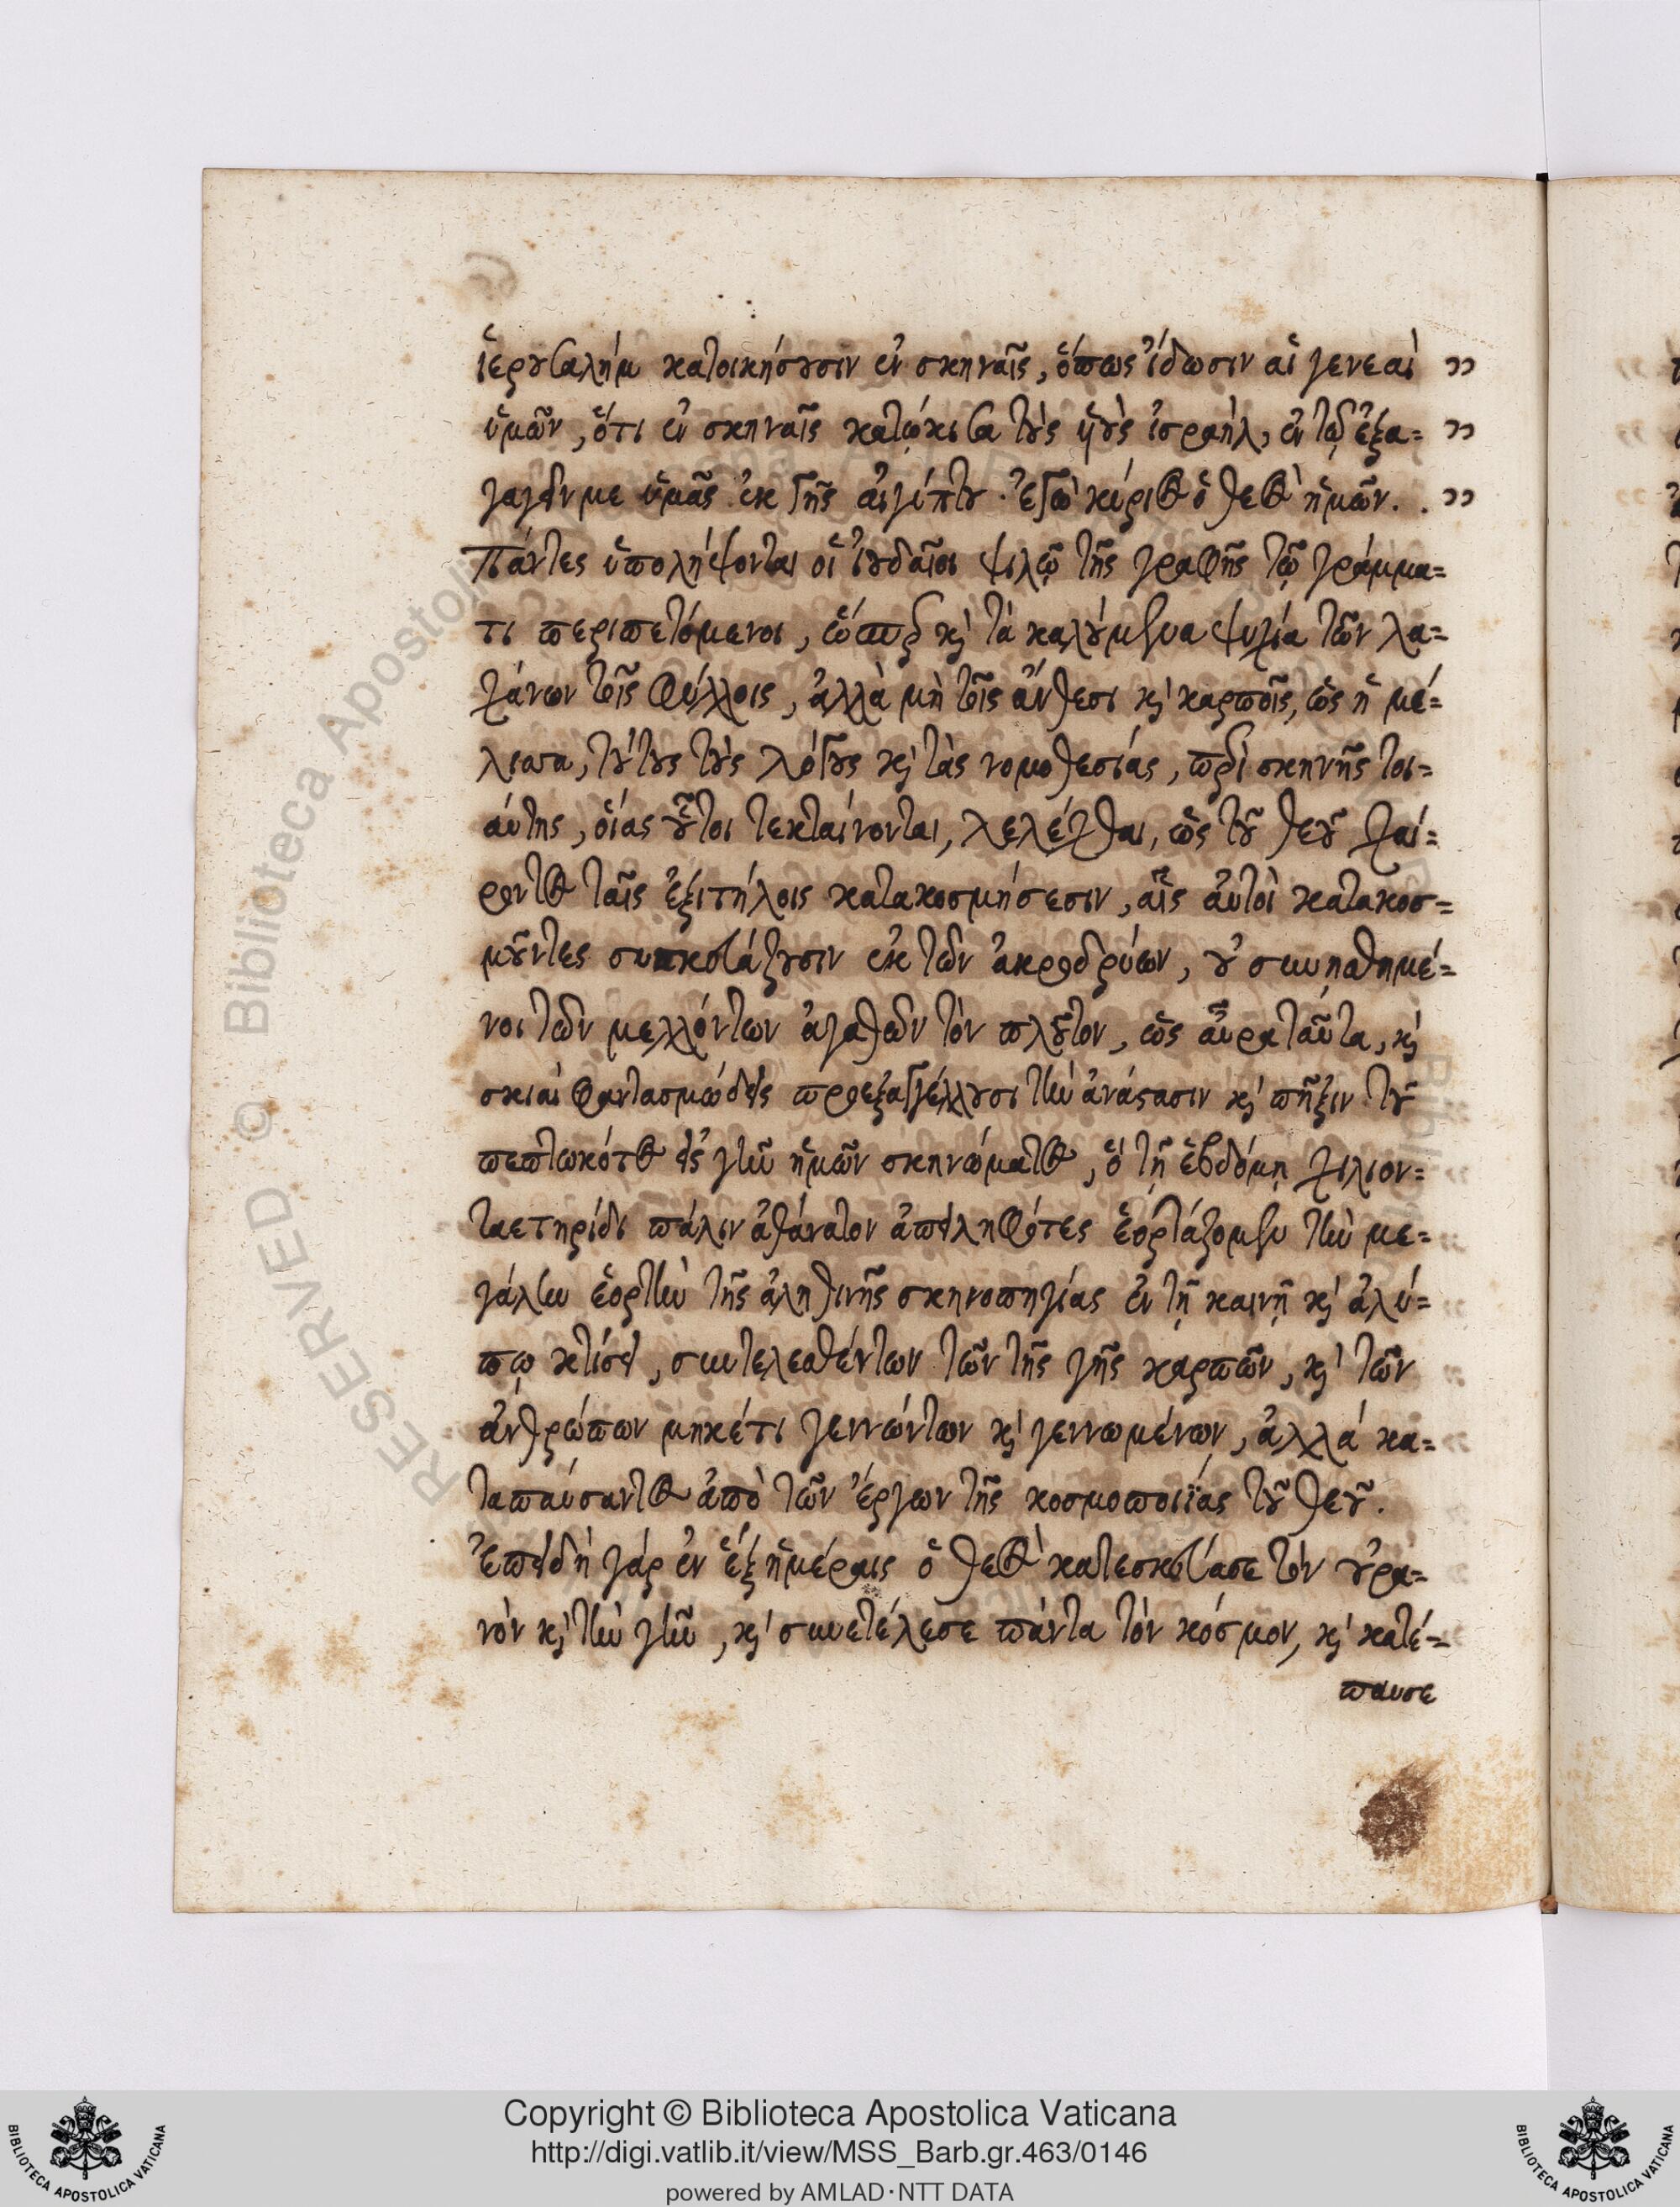 ἱερουσαλήμ κατοικήσουσιν ἐν σκηναῖς, ὅπως ἴδωσιν αἱ γενεαὶ ”
ὑμῶν, ὅτι ἐν σκηναῖς κατῴκισα τοὺς υἱοὺς ἰσραήλ, ἐν τῷ ἐξα= ”
γαγεῖν με ὑμᾶς ἐκ γῆς αἰγύπτου. ἐγὼ κύριος ὁ θεὸς ἡμῶν. . ”
Πάντες ὑποληψονται οἱ ἰουδαῖοι ψιλῷ τῆς γραφῆς τῷ γράμμα=
τι περιπετόμενοι, ὥσπερ καὶ τὰ καλούμενα ψυχία τῶν λα=
χάνων τοῖς φύλλοις, ἀλλὰ μὴ τοῖς ἄνθεσι καὶ καρποῖς, ὡς ἡ μέ=
λισσα, τούτους τοὺς λόγους καὶ τὰς νομοθεσίας, περὶ σκηνῆς τοι=
αύτης, οἵας οὗτοι τεκταίνονται, λελέχθαι, ὡς τοῦ θεοῦ χαί=
ροντος ταῖς ἐξιτήλοις κατακοσμήσεσιν, αἷς αὐτοὶ κατακοσ=
μοῦντες συσκευάζουσιν ἐκ τῶν ἀκροδρύων, οὐ συνῃσθημέ=
νοι τῶν μελλόντων ἀγαθῶν τὸν πλοῦτον, ὡς αὖρα ταῦτα, καὶ
σκιαὶ φαντασμώδεις προεξαγγέλλουσι τὴν ἀνάστασιν καὶ πῆξιν τοῦ
πεπτωκότος εἰς γῆν ἡμῶν σκηνώματος, ὃ τῇ ἑβδόμῃ χιλιον=
ταετηρίδι πάλιν ἀθάνατον ἀπειληφότες ἑορτάζομεν τὴν με=
γάλην ἑορτὴν τῆς ἀληθινῆς σκηνοπηγίας ἐν τῇ καινῇ καὶ ἀλύ=
πῳ κτίσει, συντελεσθέντων τῶν τῆς γῆς καρπῶν, καὶ τῶν
ἀνθρώπων μηκέτι γεννώντων καὶ γεννωμένων, ἀλλά κα=
ταπαύσαντος ἀπὸ τῶν ἔργων τῆς κοσμοποιΐας τοῦ θεοῦ.
Ἐπειδὴ γάρ ἐν ἓξ ἡμέραις ὁ θεὸς κατεσκεύασε τὸν οὐρα=
νὸν καὶ τὴν γῆν, καὶ συνετέλεσε πάντα τὸν κόσμον, καὶ κατέ=
παυσε
Copyright © Biblioteca Apostolica Vaticana
http://digi.vatlib.it/view/MSS_Barb.gr.463/0146
powered by AMLAD·NTT DATA
BIBLIOTECA APOSTOLICA VATICANA
BIBLIOTECA APOSTOLICA VATICANA